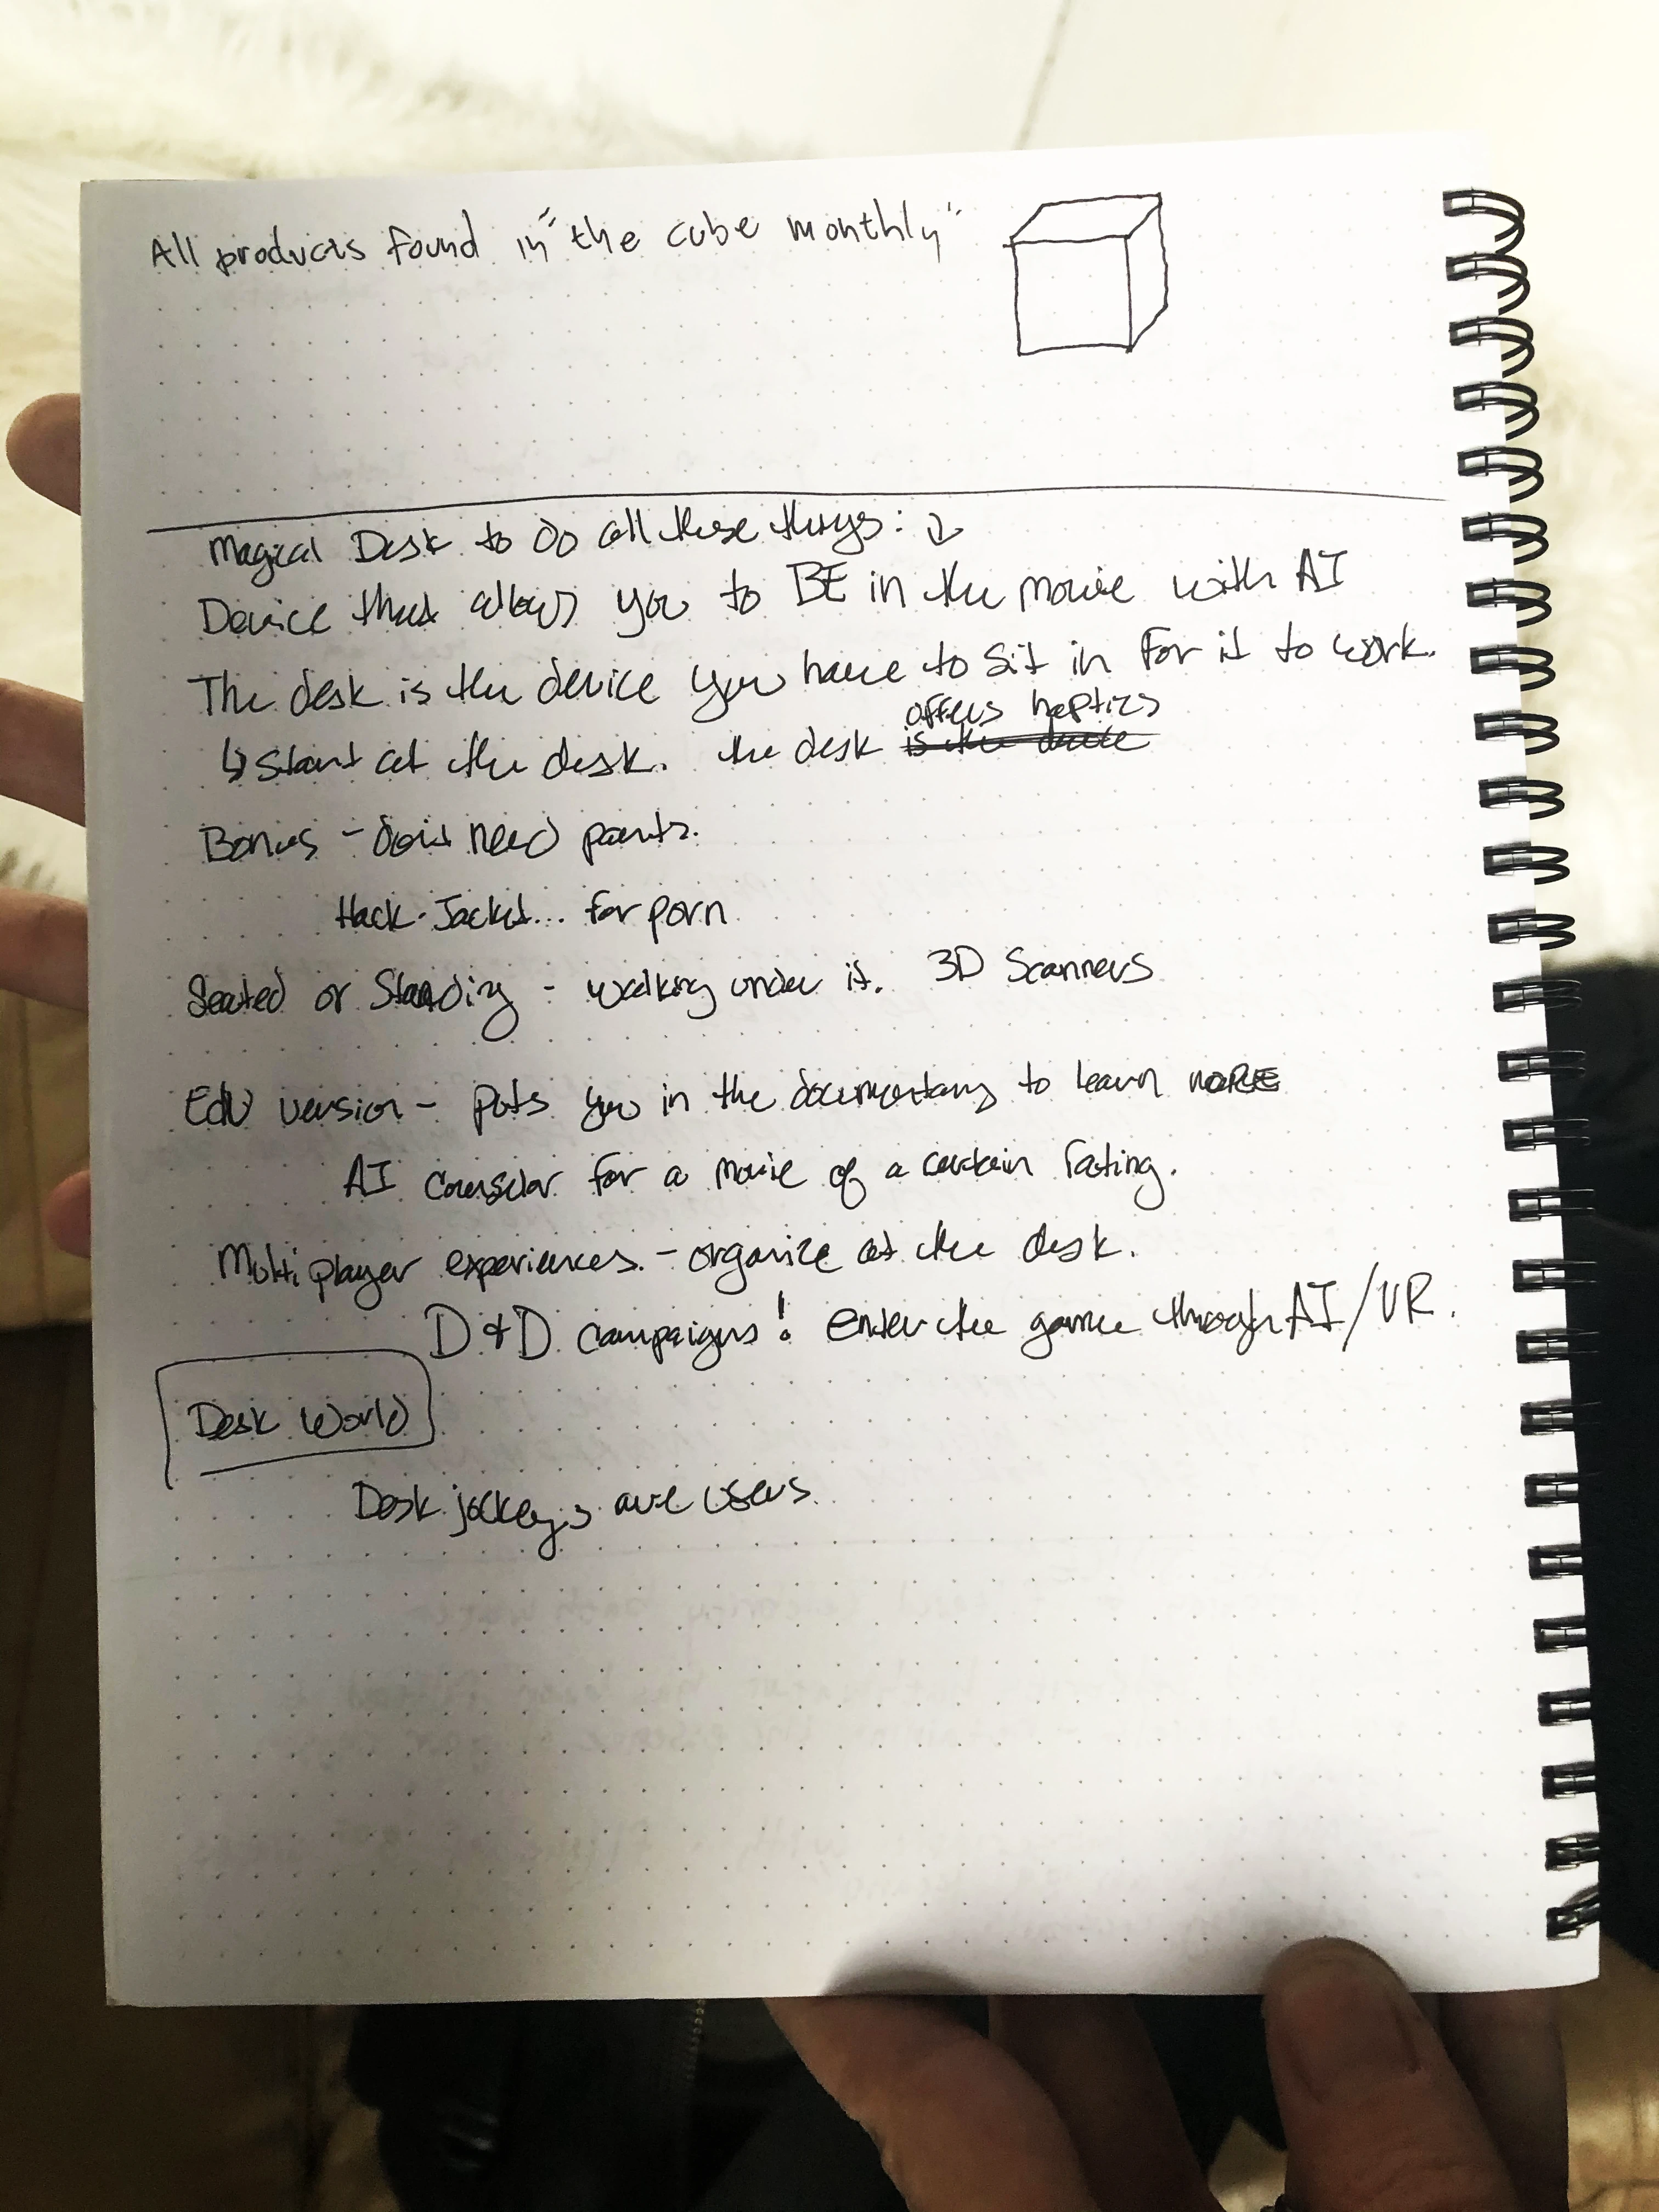 All products found in "the cube monthly"
Magical Desk to do all these things: ↓
Device that allows you to BE in the movie with AI
The desk is the device you have to sit in for it to work.
offers haptics
↳ Start at the desk. the desk is the device
Bonus - don't need pants.
Hack-Jacket... for porn
Seated or Standing - walking under it. 3D Scanners
EDU version - puts you in the documentary to learn MORE
AI counselor for a movie of a certain rating.
Multiplayer experiences. - organize at the desk.
D&D campaigns! enter the game through AI/VR.
Desk World
Desk jockeys are users